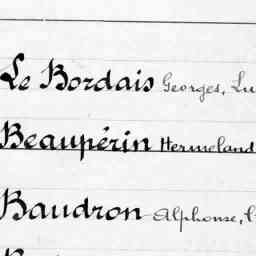 Le Bordais Georges, Lu
Beaupérin Hermeland
Baudron Alphonse,